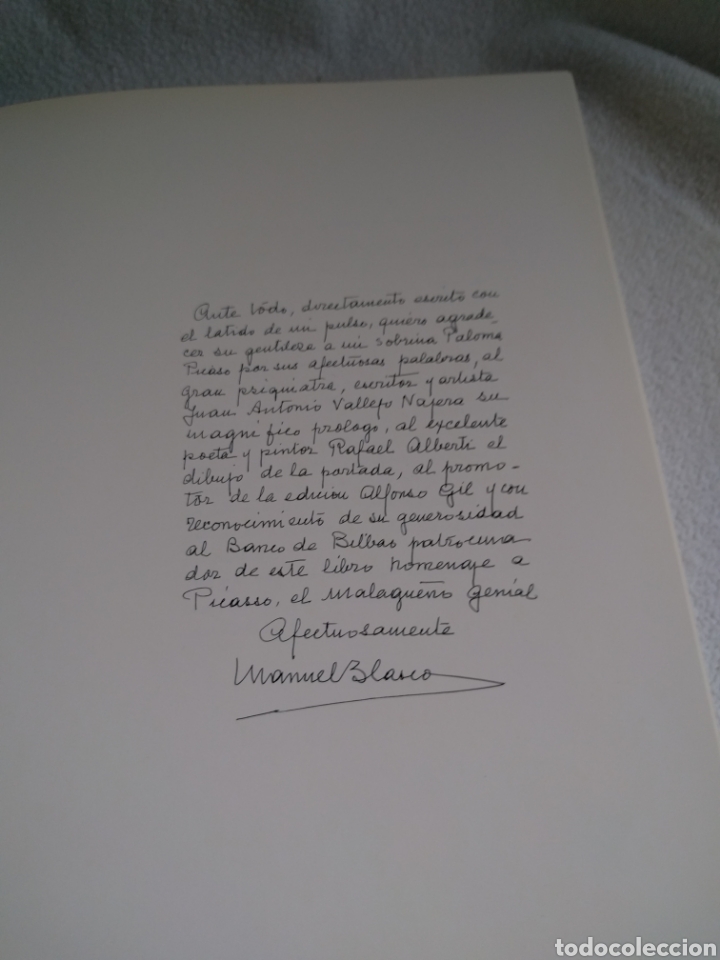 Ante tódo, directamente escrito con
el latido de mi pulso, quiero agrade-
cer su gentileza a mi sobrina Paloma
Picaso por sus afectuosas palabras, al
gran psiquiatra, escritor y artista
Juan Antonio Vallejo Najera su
magnifico prologo, al excelente
poeta y pintor Rafael Alberti el
dibujo de la portada, al promo-
tor de la edicion Alfonso Gil y con
reconocimiento de su generosidad
al Banco de Bilbao patrocina
dor de este libro homenaje a
Picasso, el Malagueño genial
Afectuosamente
Manuel Blasco
todocoleccion